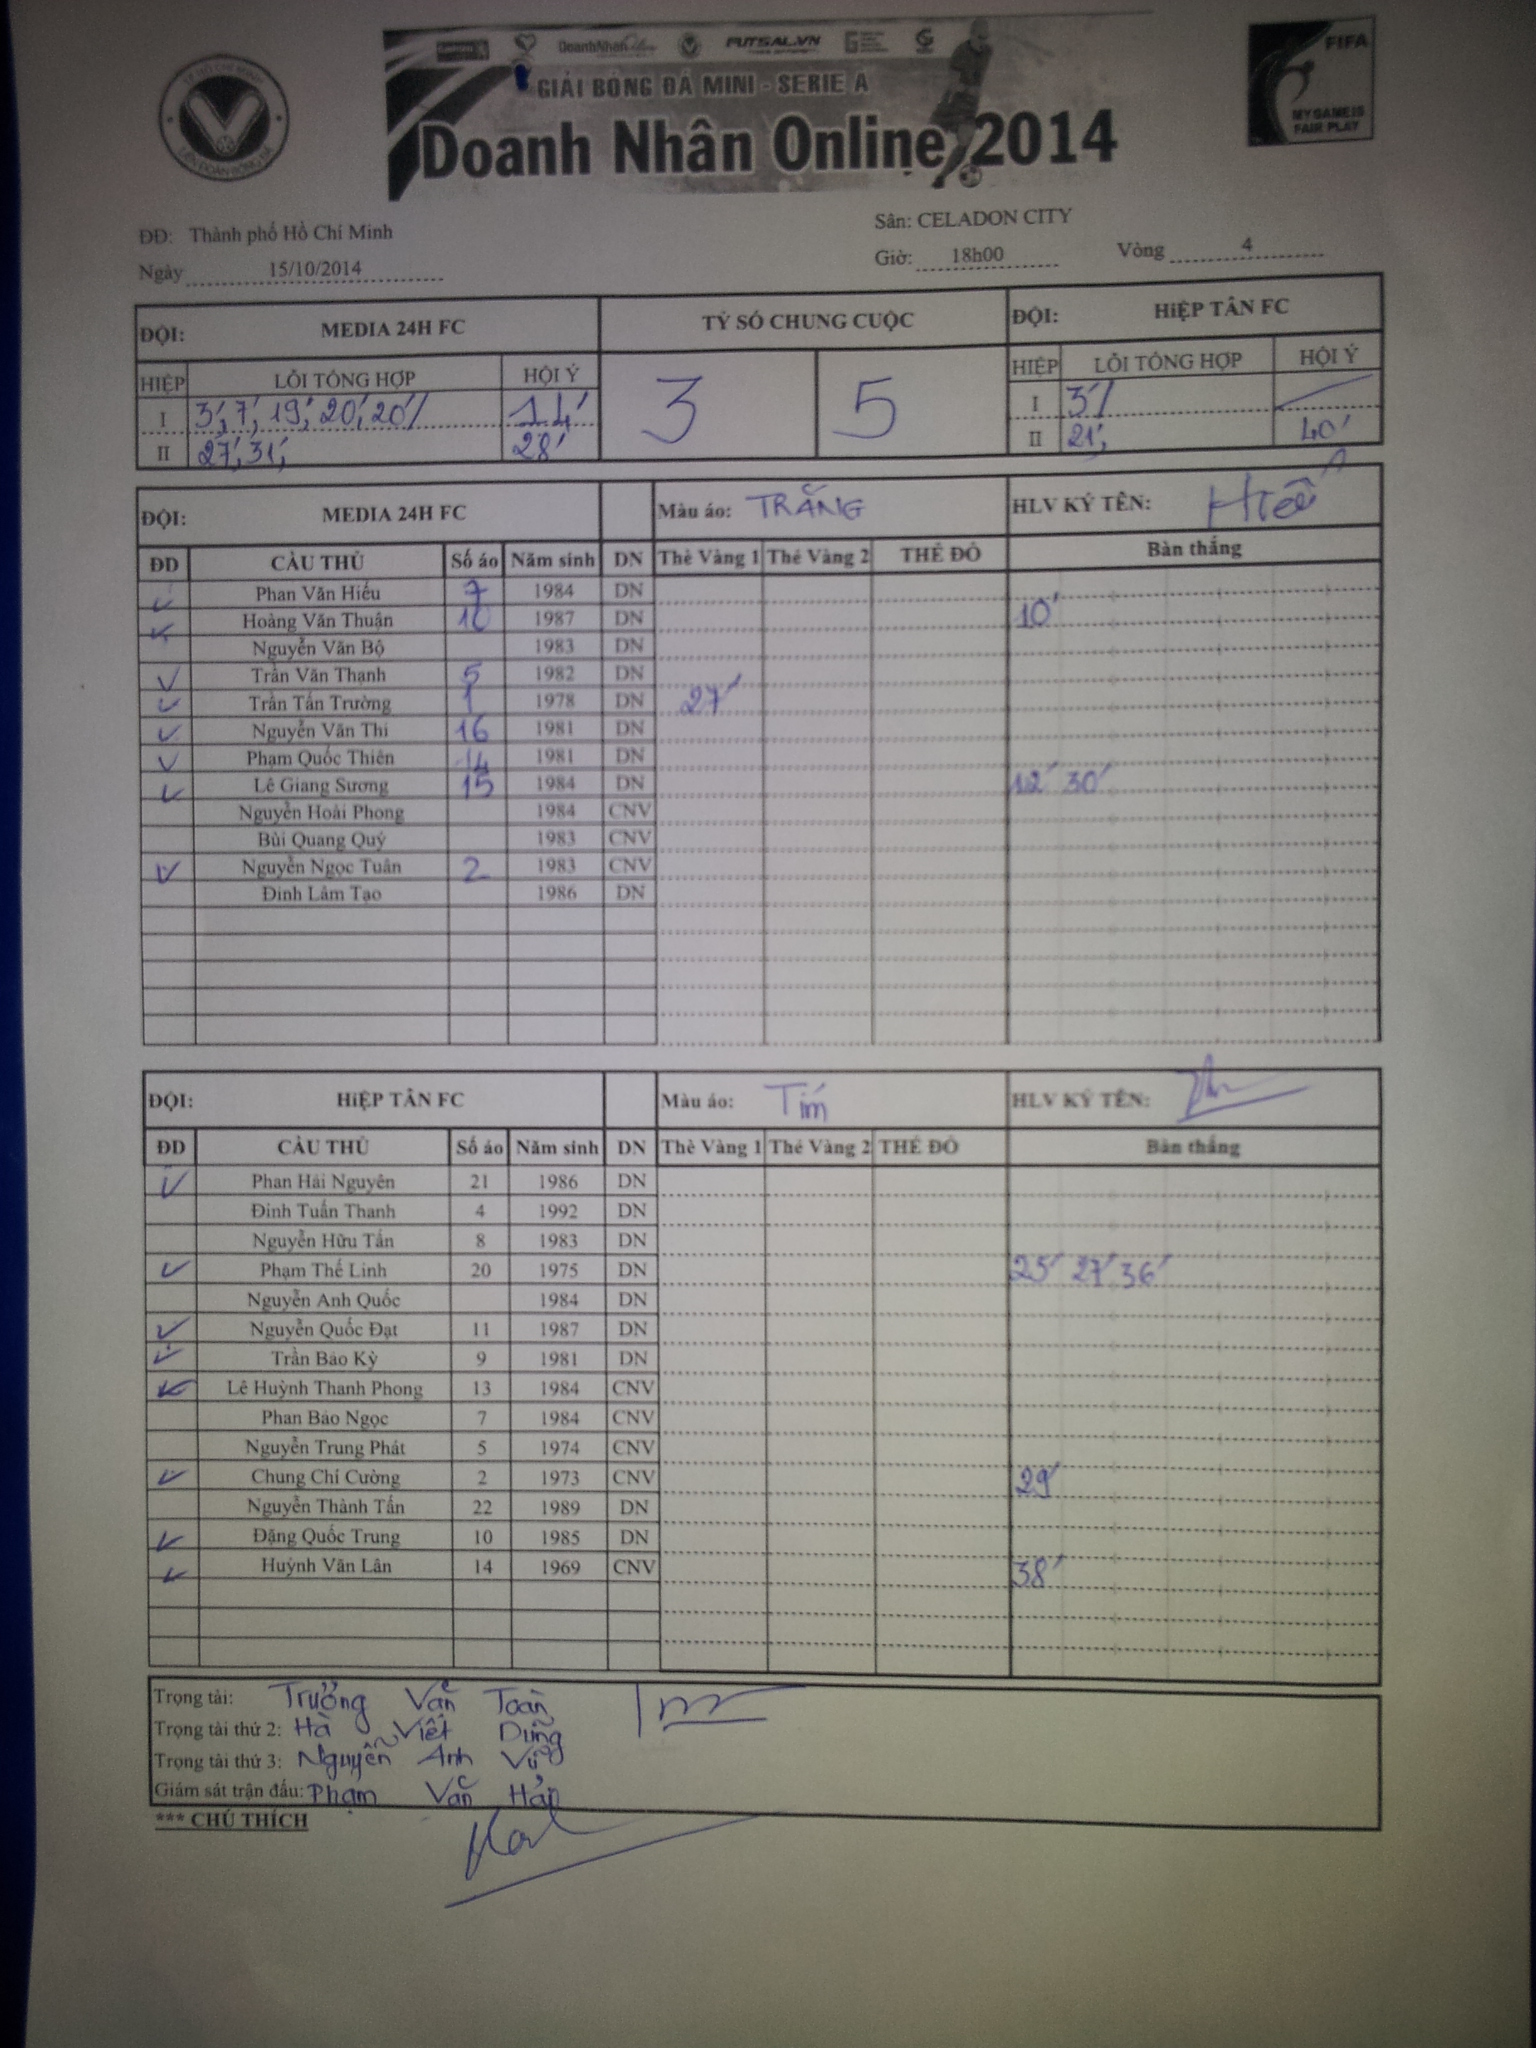 TP HỒ CHÍ MINH
LIÊN ĐOÀN BÓNG ĐÁ
DoanhNhanOnline FUTSAL.VN
GIẢI BÓNG ĐÁ MINI - SERIE A
Doanh Nhân Online 2014
FIFA
MY GAME IS
FAIR PLAY
ĐĐ: Thành phố Hồ Chí Minh Sân: CELADON CITY
Ngày 15/10/2014 Giờ: 18h00 Vòng 4
ĐỘI: MEDIA 24H FC TỶ SỐ CHUNG CUỘC ĐỘI: HiỆP TÂN FC
HIỆP LỖI TỔNG HỢP HỘI Ý 3 5 HIỆP LỖI TỔNG HỢP HỘI Ý
I 3', 7', 19', 20', 20'/ 14' I 3'/
II 27', 31', 28' II 21', 40'
ĐỘI: MEDIA 24H FC Màu áo: TRẮNG HLV KÝ TÊN: Hiếu
ĐD CẦU THỦ Số áo Năm sinh DN Thẻ Vàng 1 Thẻ Vàng 2 THẺ ĐỎ Bàn thắng
Phan Văn Hiếu 7 1984 DN
Hoàng Văn Thuận 10 1987 DN 10'
Nguyễn Văn Bộ 1983 DN
Trần Văn Thạnh 5 1982 DN
Trần Tấn Trường 1 1978 DN 27'
Nguyễn Văn Thi 16 1981 DN
Phạm Quốc Thiên 14 1981 DN
Lê Giang Sương 15 1984 DN 12' 30'
Nguyễn Hoài Phong 1984 CNV
Bùi Quang Quý 1983 CNV
Nguyễn Ngọc Tuân 2 1983 CNV
Đinh Lâm Tạo 1986 DN
ĐỘI: HiỆP TÂN FC Màu áo: Tím HLV KÝ TÊN:
ĐD CẦU THỦ Số áo Năm sinh DN Thẻ Vàng 1 Thẻ Vàng 2 THẺ ĐỎ Bàn thắng
Phan Hải Nguyên 21 1986 DN
Đinh Tuấn Thanh 4 1992 DN
Nguyễn Hữu Tấn 8 1983 DN
Phạm Thế Linh 20 1975 DN 25' 27' 36'
Nguyễn Anh Quốc 1984 DN
Nguyễn Quốc Đạt 11 1987 DN
Trần Bảo Kỳ 9 1981 DN
Lê Huỳnh Thanh Phong 13 1984 CNV
Phan Bảo Ngọc 7 1984 CNV
Nguyễn Trung Phát 5 1974 CNV
Chung Chí Cường 2 1973 CNV 29'
Nguyễn Thành Tấn 22 1989 DN
Đặng Quốc Trung 10 1985 DN
Huỳnh Văn Lân 14 1969 CNV 38'
Trọng tài: Trưởng Văn Toàn
Trọng tài thứ 2: Hà Viết Dũng
Trọng tài thứ 3: Nguyễn Anh Vũ
Giám sát trận đấu: Phạm Văn Hải
*** CHÚ THÍCH